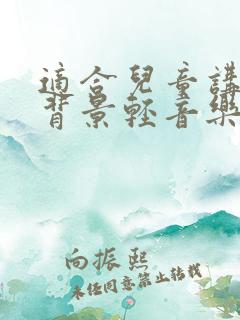 適合兒童講
背景輕音樂
向振熙
未任同意禁止转载